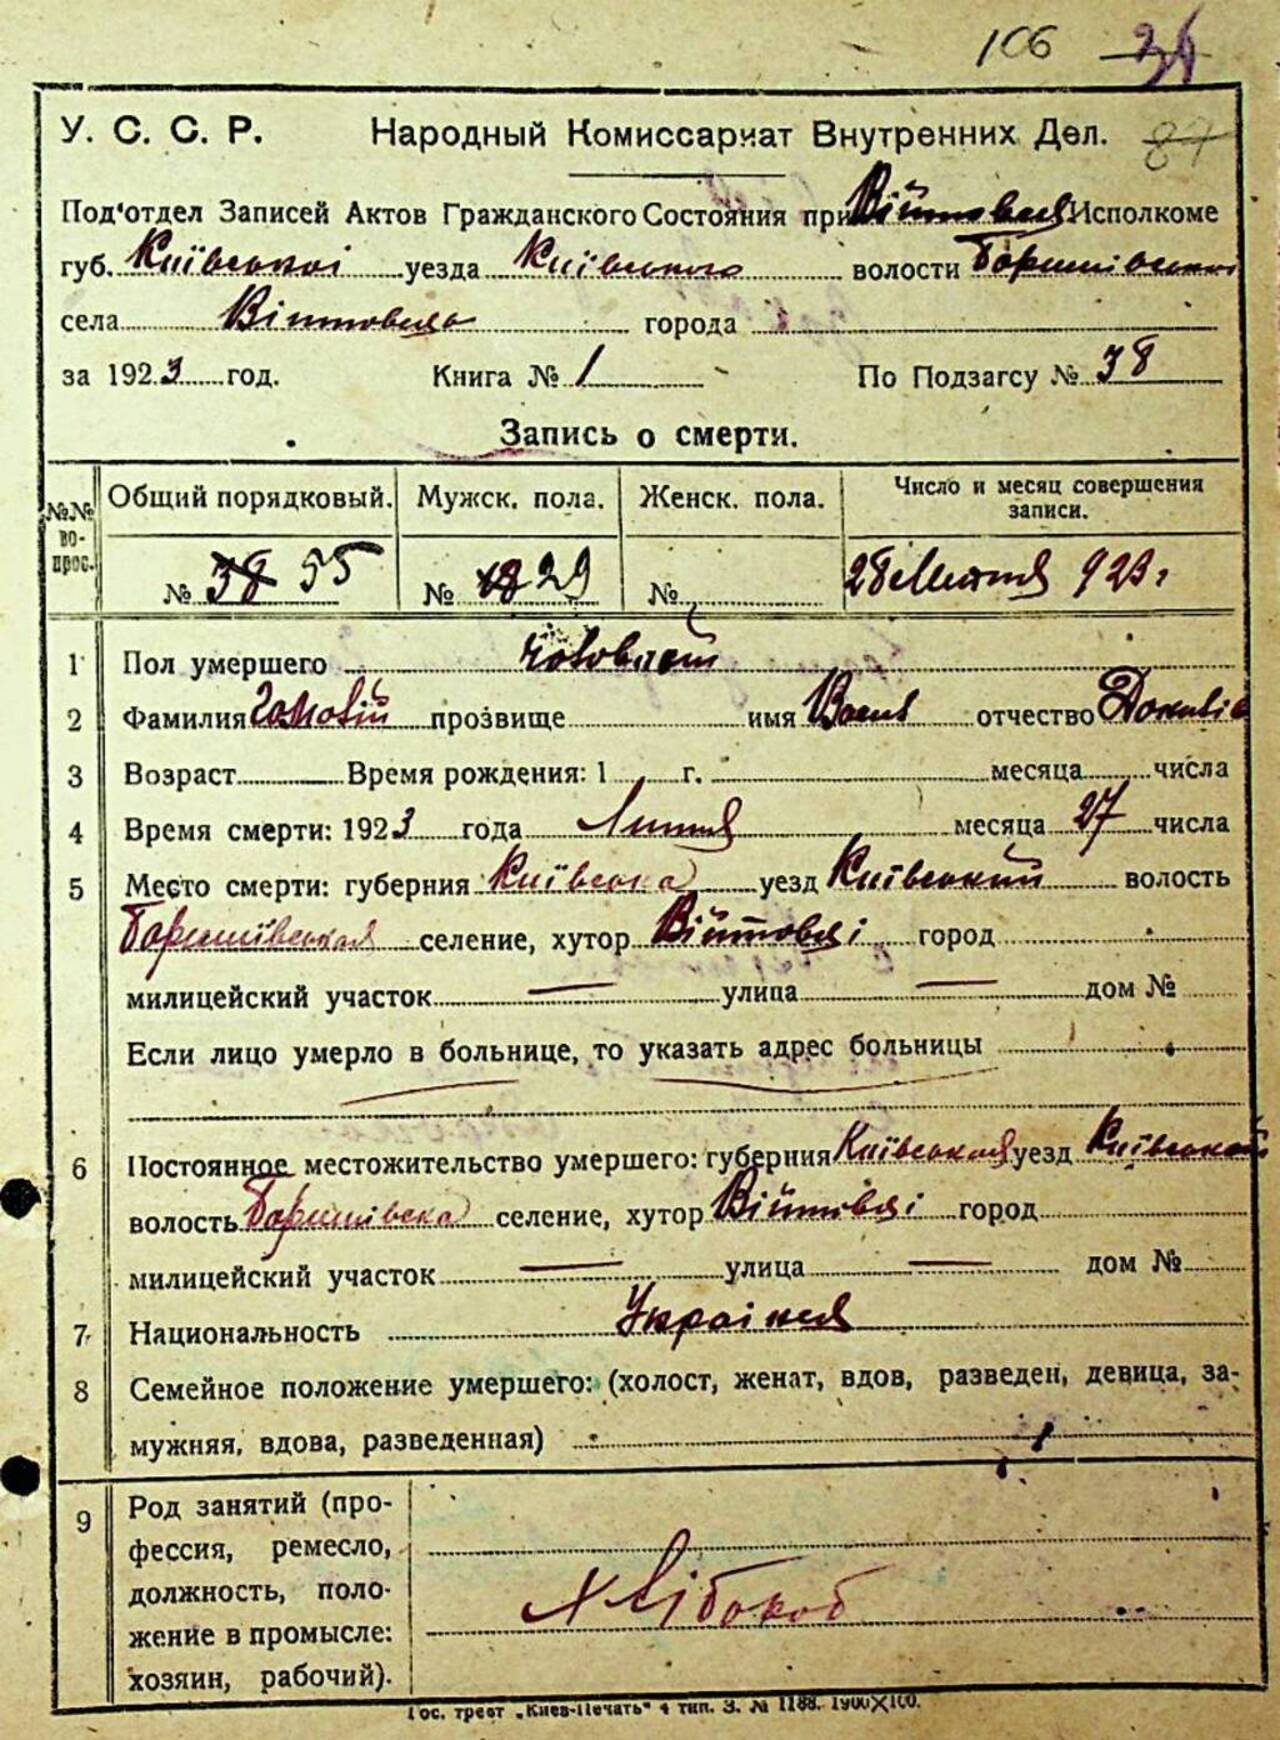 106 34
У. С. С. Р. Народный Комиссариат Внутренних Дел. 87
Под'отдел Записей Актов Гражданского Состояния при Исполкоме
губ. Київської уезда Київського волости
села города
за 1923 год. Книга № 1 По Подзагсу № 38
Запись о смерти.
№№ во-прос. Общий порядковый. Мужск. пола. Женск. пола. Число и месяц совершения записи.
№ 38 55 № 18 29 № 28 Липня 923 г
1 Пол умершего чоловічий
2 Фамилия прозвище имя Василь отчество
3 Возраст Время рождения: 1 г. месяца числа
4 Время смерти: 1923 года Липня месяца 27 числа
5 Место смерти: губерния Київська уезд Київський волость
селение, хутор Війтовці город
милицейский участок — улица — дом №
Если лицо умерло в больнице, то указать адрес больницы
6 Постоянное местожительство умершего: губерния уезд Київський
волость селение, хутор Війтовці город
милицейский участок — улица — дом №
7 Национальность
8 Семейное положение умершего: (холост, женат, вдов, разведен, девица, за-
мужняя, вдова, разведенная)
9 Род занятий (про-
фессия, ремесло,
должность, поло-
жение в промысле: Хлібороб
хозяин, рабочий).
Гос. трест „Киев-Печать" 4 тип. З. № 1188. 1900×100.